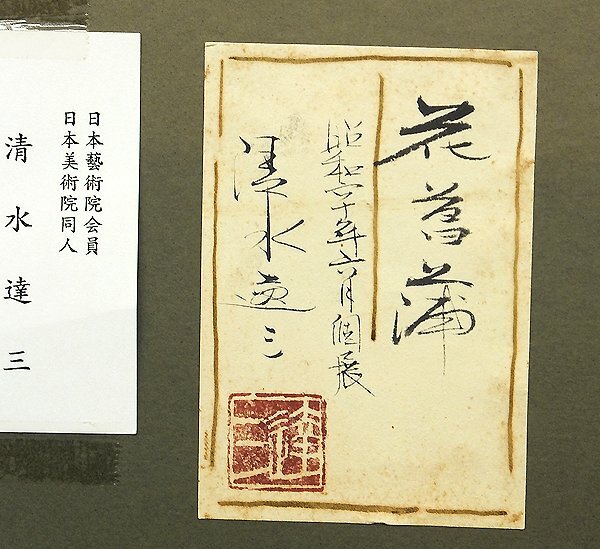 花菖蒲
昭和六十年六月個展
清水達三
達三
日本藝術院会員
日本美術院同人
清水達三